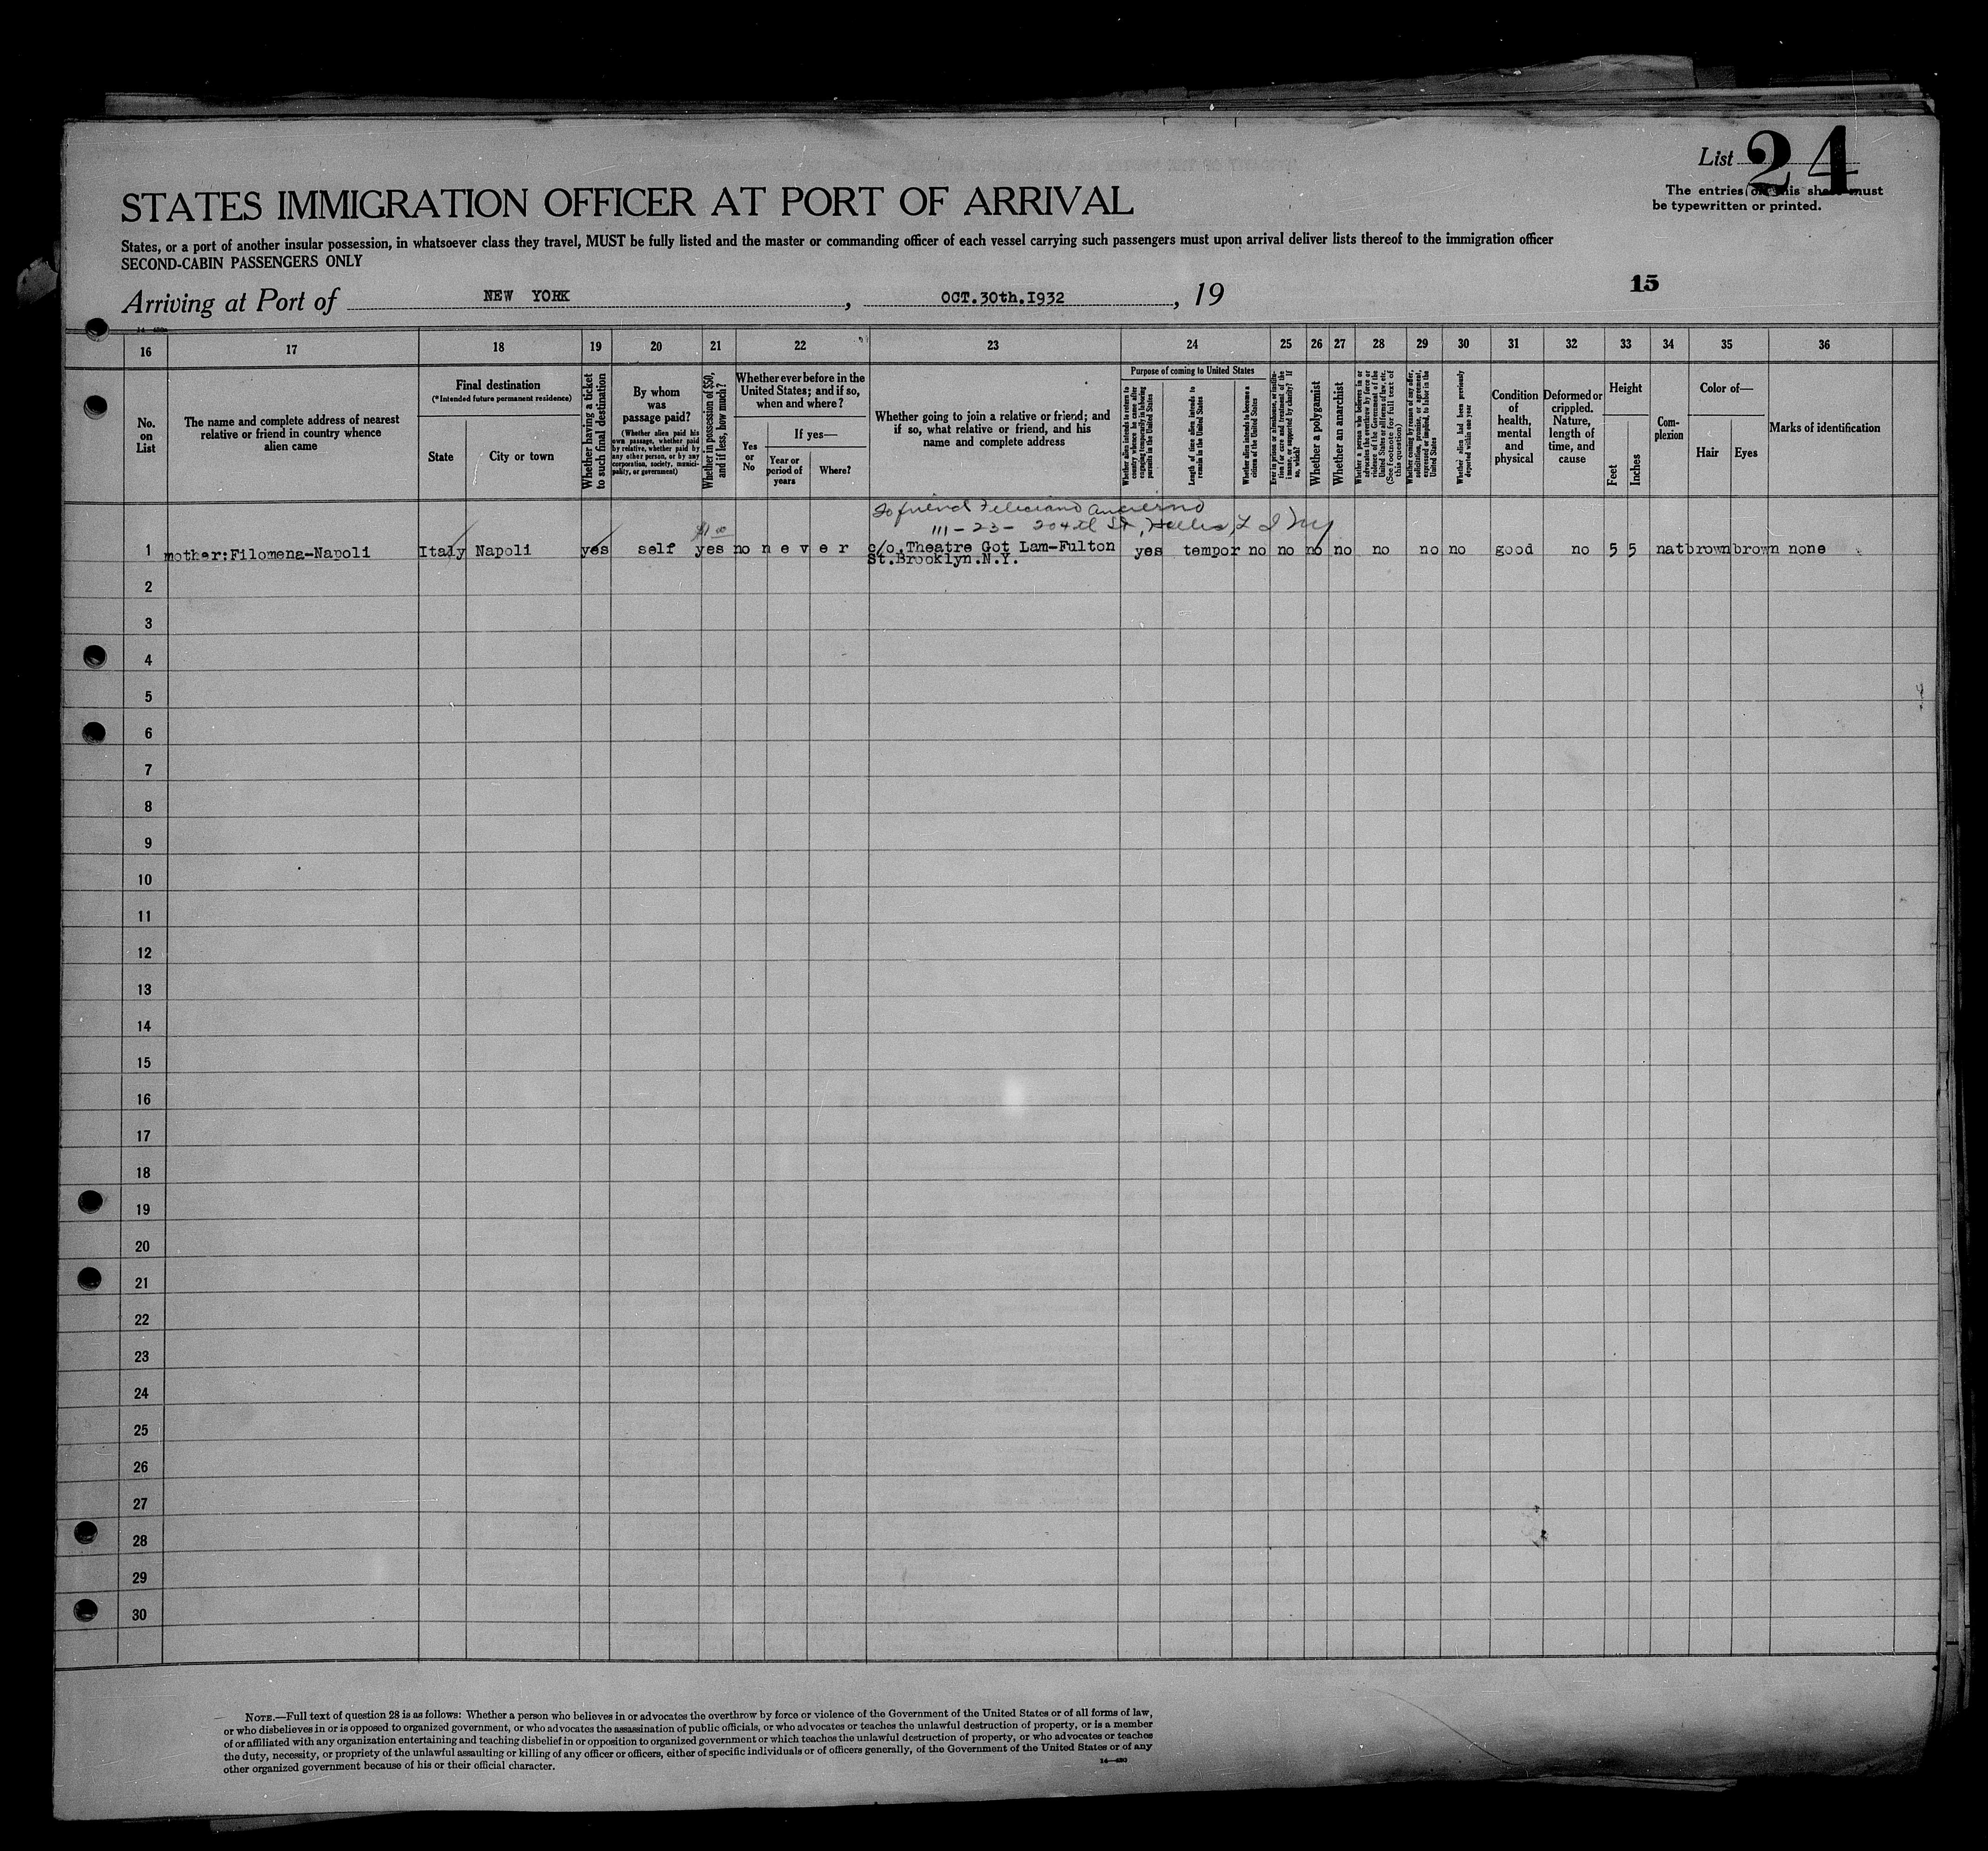 List 24
The entries on this sheet must
be typewritten or printed.
STATES IMMIGRATION OFFICER AT PORT OF ARRIVAL
States, or a port of another insular possession, in whatsoever class they travel, MUST be fully listed and the master or commanding officer of each vessel carrying such passengers must upon arrival deliver lists thereof to the immigration officer
SECOND-CABIN PASSENGERS ONLY
15
Arriving at Port of NEW YORK, OCT.30th.I932, 19
16 17 18 19 20 21 22 23 24 25 26 27 28 29 30 31 32 33 34 35 36
No.
on
List
The name and complete address of nearest
relative or friend in country whence
alien came
Final destination
(*Intended future permanent residence)
State
City or town
Whether having a ticket
to such final destination
By whom
was
passage paid?
(Whether alien paid his
own passage, whether paid
by relative, whether paid by
any other person, or by any
corporation, society, munici-
pality, or government)
Whether in possession of $50,
and if less, how much?
Whether ever before in the
United States; and if so,
when and where?
Yes
or
No
If yes—
Year or
period of
years
Where?
Whether going to join a relative or friend; and
if so, what relative or friend, and his
name and complete address
Purpose of coming to United States
Whether alien intends to return to
country whence he came after
engaging temporarily in laboring
pursuits in the United States
Length of time alien intends to
remain in the United States
Whether alien intends to become a
citizen of the United States
Ever in prison or almshouse, or institu-
tion for care and treatment of the
insane, or supported by charity? If
so, which?
Whether a polygamist
Whether an anarchist
Whether a person who believes in or
advocates the overthrow by force or
violence of the Government of the
United States or all forms of law, etc.
(See footnote for full text of
this question)
Whether coming by reason of any offer,
solicitation, promise, or agreement,
expressed or implied, to labor in the
United States
Whether alien had been previously
deported within one year
Condition
of
health,
mental
and
physical
Deformed or
crippled.
Nature,
length of
time, and
cause
Height
Feet
Inches
Com-
plexion
Color of—
Hair
Eyes
Marks of identification
To friend Feliciano
111-23-204th St, Hollis, L I NY
1 mother:Filomena-Napoli Italy Napoli yes self yes no never c/o.Theatre Got Lam-Fulton yes tempor no no no no no no no good no 5 5 nat brown brown none
St.Brooklyn.N.Y.
2
3
4
5
6
7
8
9
10
11
12
13
14
15
16
17
18
19
20
21
22
23
24
25
26
27
28
29
30
NOTE.—Full text of question 28 is as follows: Whether a person who believes in or advocates the overthrow by force or violence of the Government of the United States or of all forms of law,
or who disbelieves in or is opposed to organized government, or who advocates the assassination of public officials, or who advocates or teaches the unlawful destruction of property, or is a member
of or affiliated with any organization entertaining and teaching disbelief in or opposition to organized government or which teaches the unlawful destruction of property, or who advocates or teaches
the duty, necessity, or propriety of the unlawful assaulting or killing of any officer or officers, either of specific individuals or of officers generally, of the Government of the United States or of any
other organized government because of his or their official character.
14—430